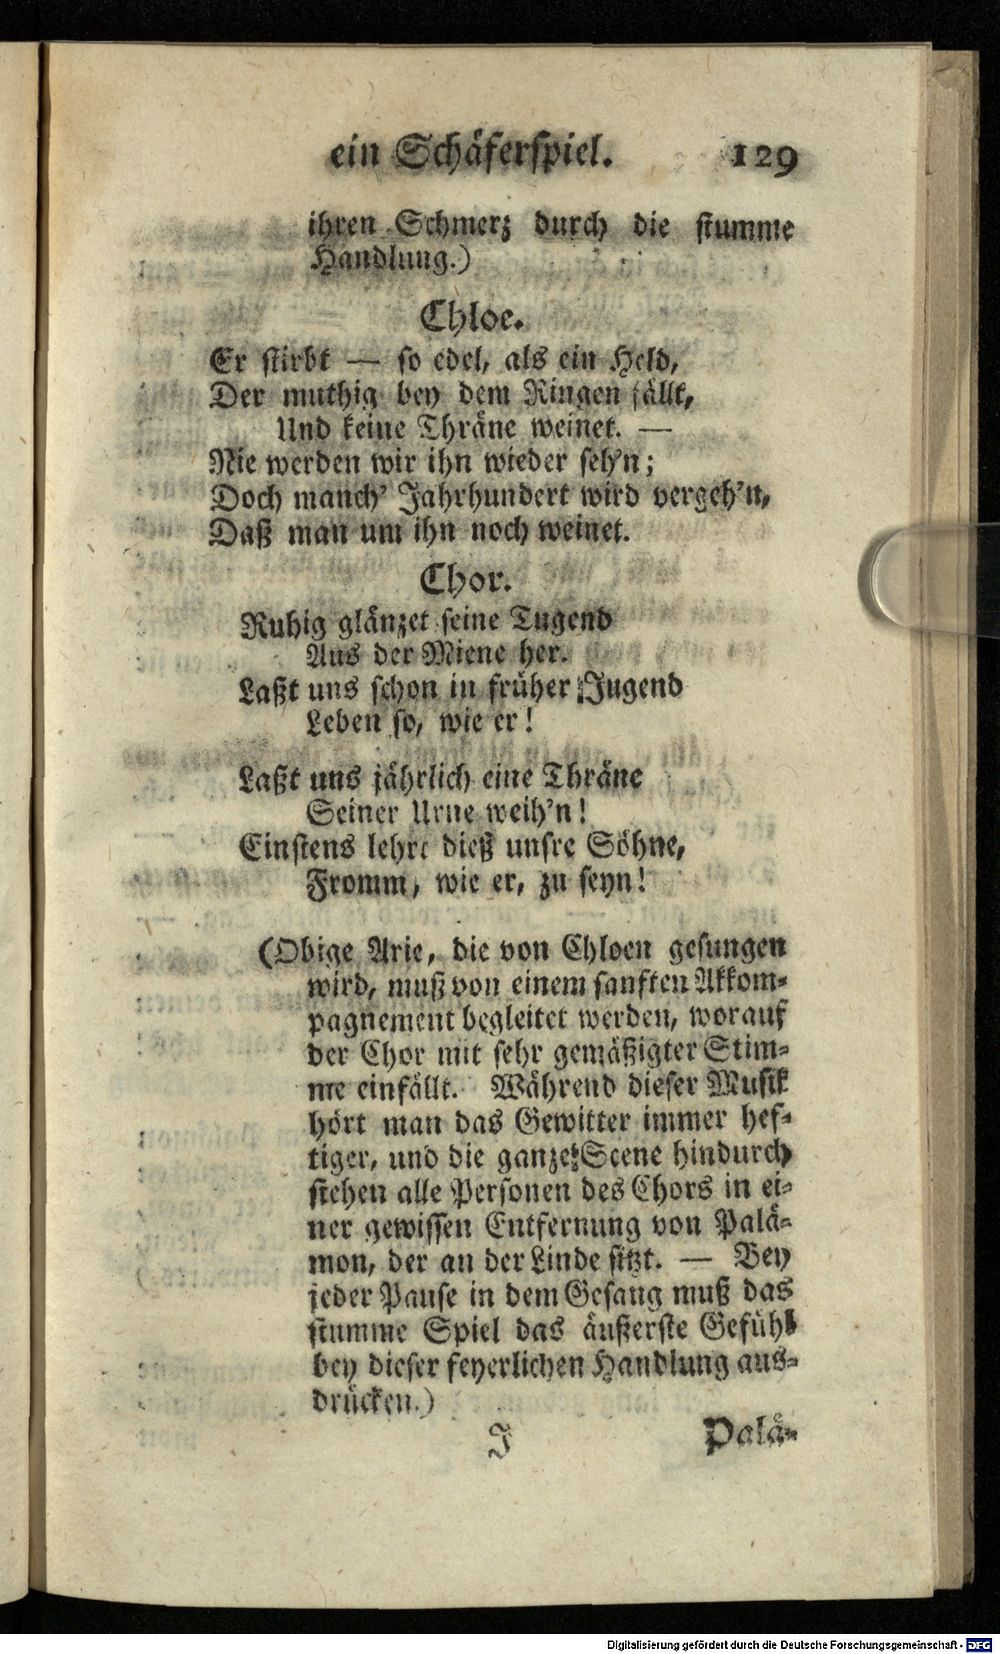 ein Schäferspiel. 129
ihren Schmerz durch die stumme
Handlung.)
Chloe.
Er stirbt — so edel, als ein Held,
Der muthig bey dem Ringen fällt,
Und keine Thräne weinet. —
Nie werden wir ihn wieder seh'n;
Doch manch' Jahrhundert wird vergeh'n,
Daß man um ihn noch weinet.
Chor.
Ruhig glänzet seine Tugend
Aus der Miene her.
Laßt uns schon in früher Jugend
Leben so, wie er!
Laßt uns jährlich eine Thräne
Seiner Urne weih'n!
Einstens lehre dieß unsre Söhne,
Fromm, wie er, zu seyn!
(Obige Arie, die von Chloen gesungen
wird, muß von einem sanften Akkom-
pagnement begleitet werden, worauf
der Chor mit sehr gemäßigter Stim-
me einfällt. Während dieser Musik
hört man das Gewitter immer hef-
tiger, und die ganze Scene hindurch
stehen alle Personen des Chors in ei-
ner gewissen Entfernung von Palä-
mon, der an der Linde sitzt. — Bey
jeder Pause in dem Gesang muß das
stumme Spiel das äußerste Gefühl
bey dieser feyerlichen Handlung aus-
drücken.)
J Palä-
Digitalisierung gefördert durch die Deutsche Forschungsgemeinschaft - DFG